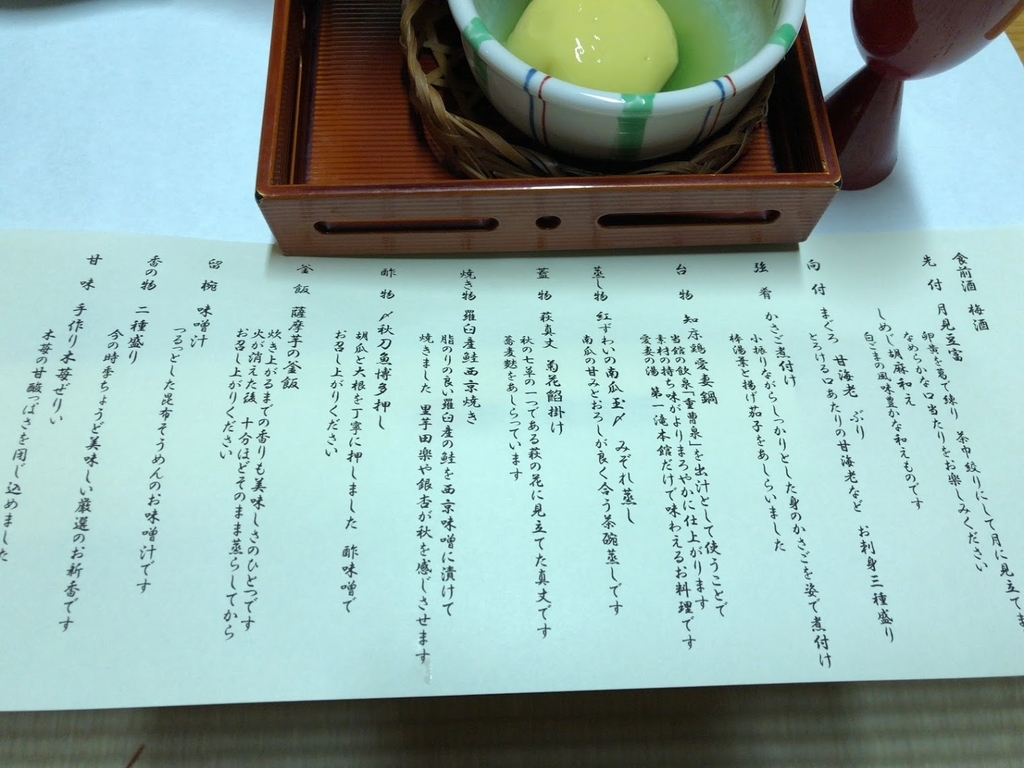 食前酒 梅酒
先付 月見豆富
卵黄を葛で練り 茶巾絞りにして月に見立てま
なめらかな口当たりをお楽しみください
しめじ胡麻和え
白ごまの風味豊かな和えものです
向付 まぐろ 甘海老 ぶり
とろける口あたりの甘海老など お刺身三種盛り
強肴 かさご煮付け
小振りながらしっかりとした身のかさごを姿で煮付け
棒湯葉と揚げ茄子をあしらいました
台物 知床鶏愛妻鍋
当館の飲泉「重曹泉」を出汁として使うことで
素材の持ち味がよりまろやかに仕上がります
愛妻の湯 第一滝本館だけで味わえるお料理です
蒸し物 紅ずわいの南瓜玉〆 みぞれ蒸し
南瓜の甘みとおろしが良く合う茶碗蒸しです
蓋物 萩真丈 菊花餡掛け
秋の七草の一つである萩の花に見立てた真丈です
蕎麦麩をあしらっています
焼き物 羅臼産鮭西京焼き
脂のりの良い羅臼産の鮭を西京味噌に漬けて
焼きました 里芋田楽や銀杏が秋を感じさせます
酢物 〆秋刀魚博多押し
胡瓜と大根を丁寧に押しました 酢味噌で
お召し上がりください
釜飯 薩摩芋の釜飯
炊き上がるまでの香りも美味しさのひとつです
火が消えた後 十分ほどそのまま蒸らしてから
お召し上がりください
留椀 味噌汁
つるっとした昆布そうめんのお味噌汁です
香の物 二種盛り
今の時季ちょうど美味しい厳選のお新香です
甘味 手作り木苺ぜりい
木苺の甘酸っぱさを閉じ込めました